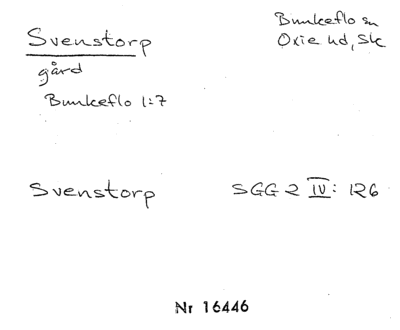 Svenstorp
gård
Bunkeflo 1:7
Bunkeflo sn
Oxie hd, Sk
Svenstorp SGG 2 IV: 126
Nr 16446